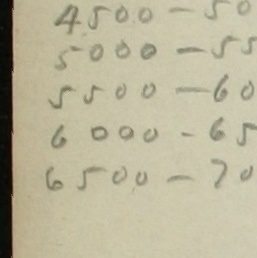 4500 - 50
5000 - 55
5500 - 60
6000 - 65
6500 - 70